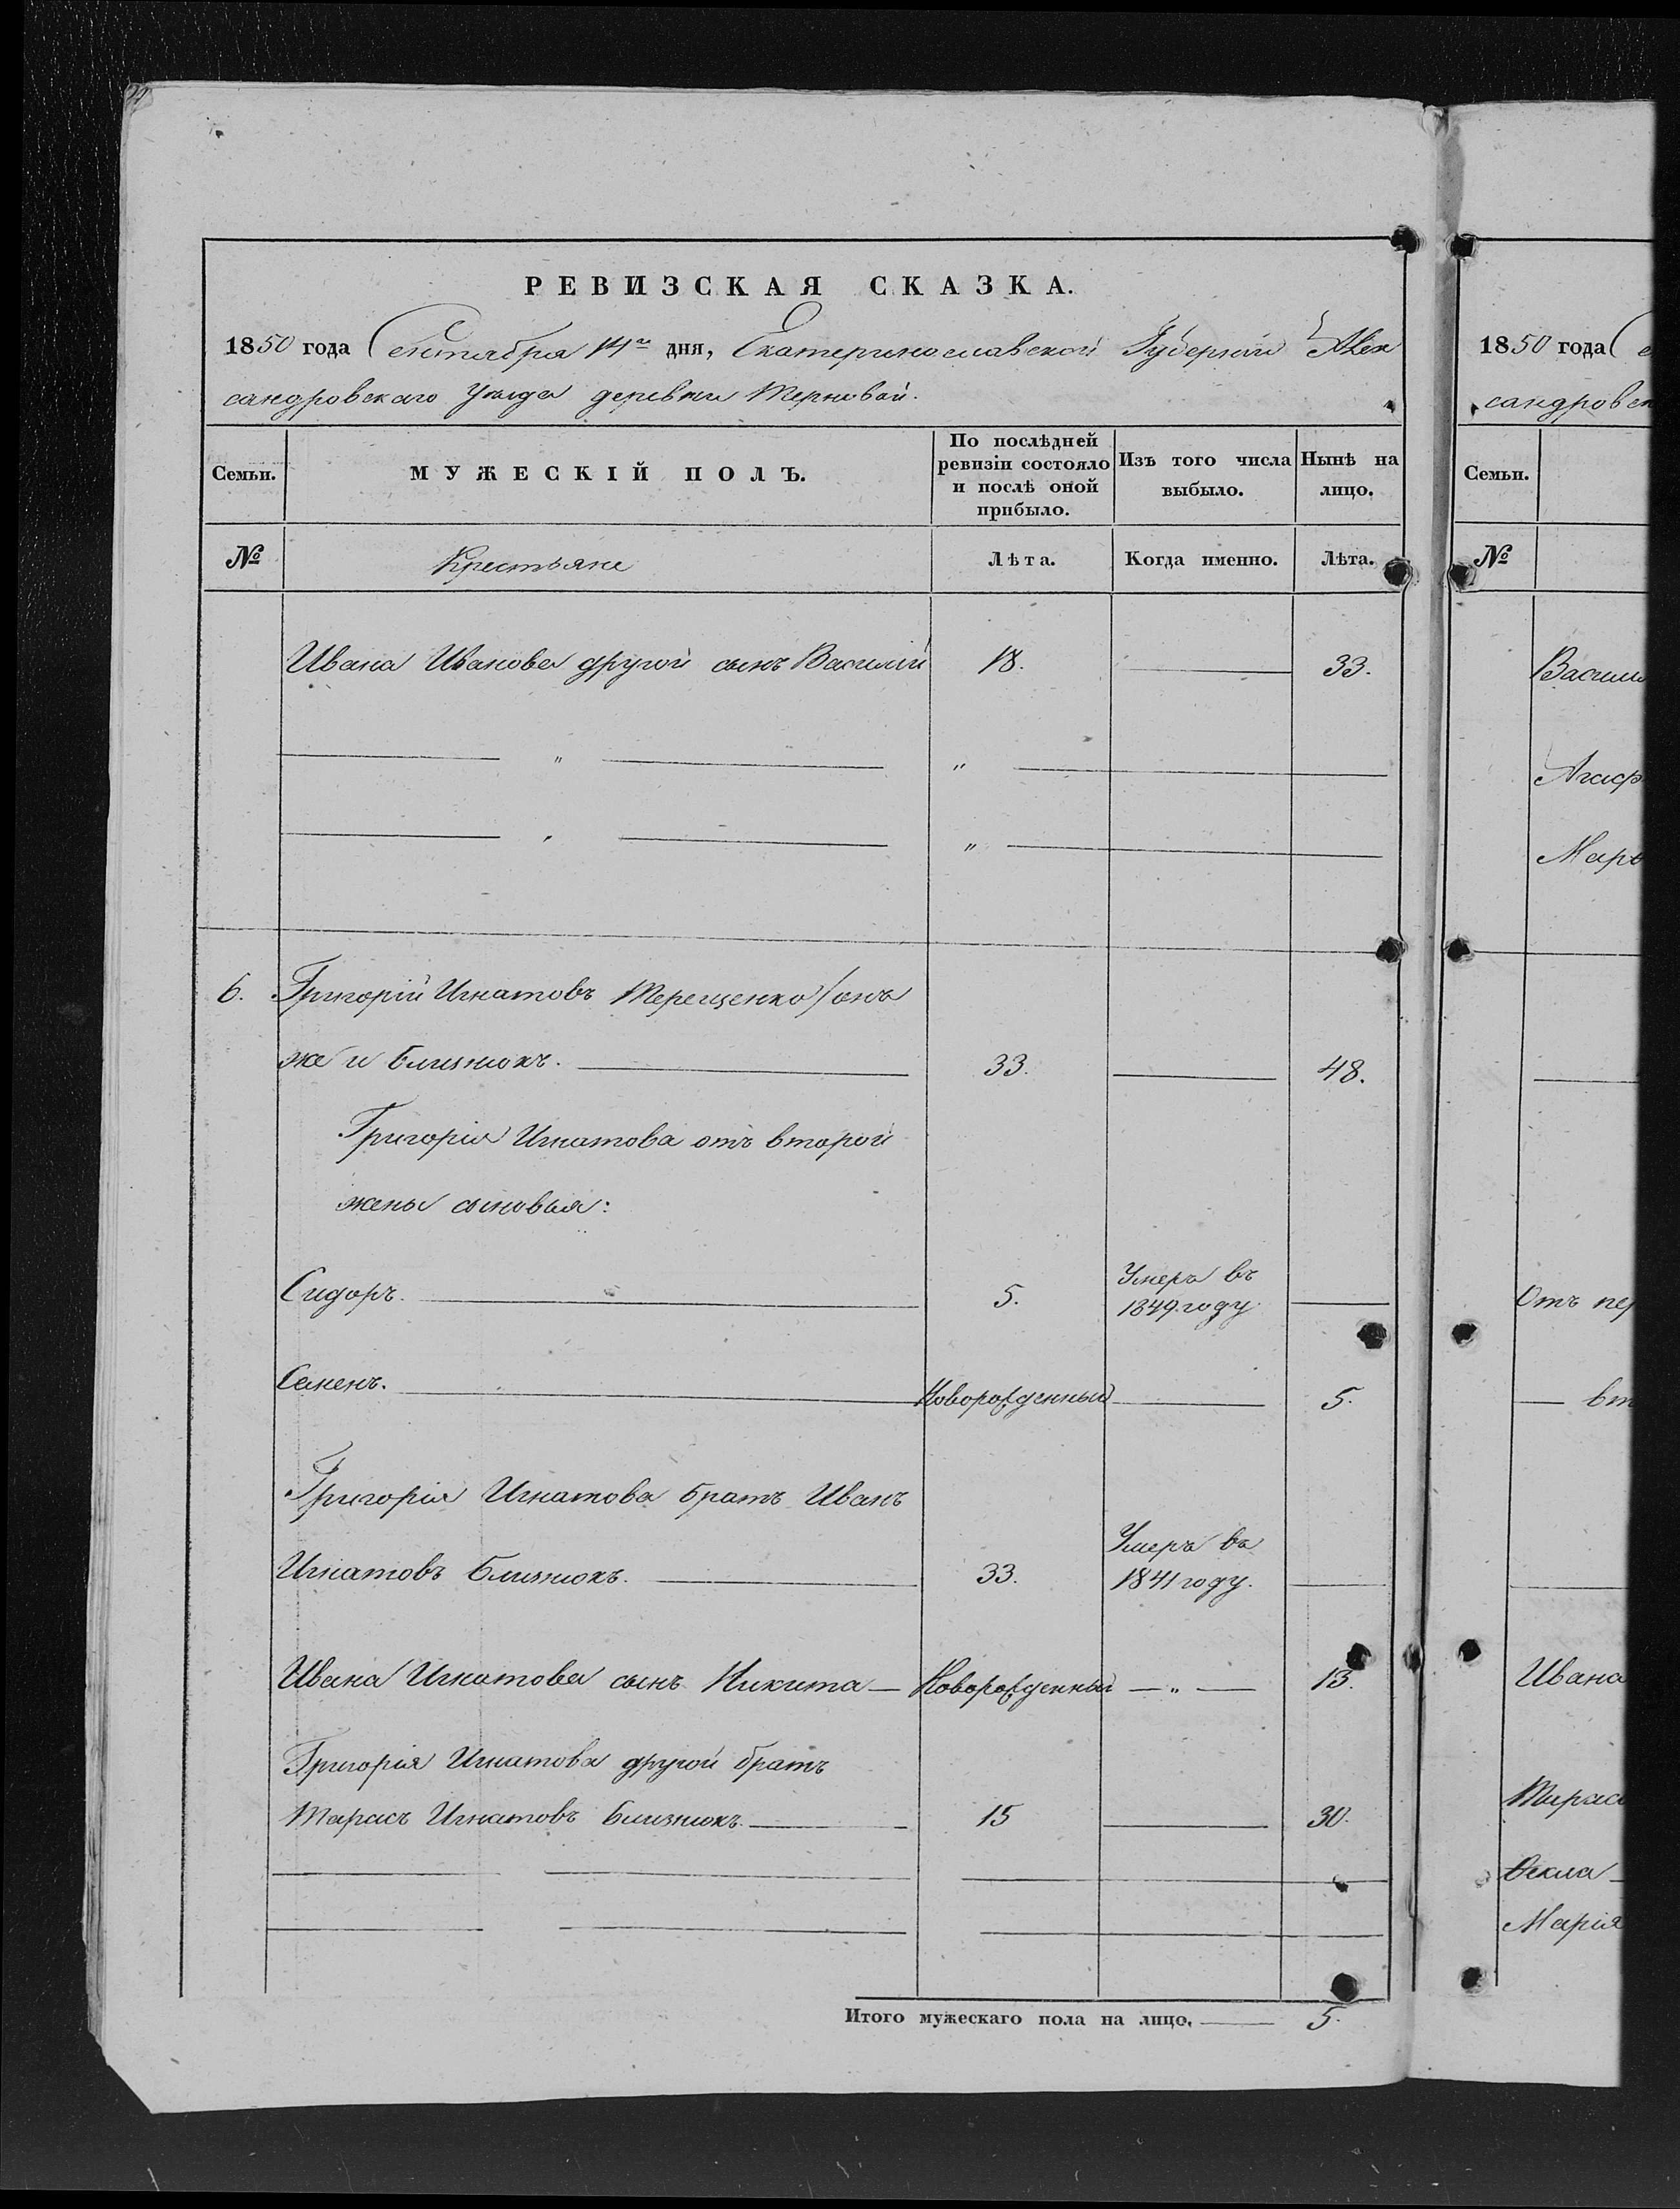 РЕВИЗСКАЯ СКАЗКА.
1850 года Сентября 14го дня, Екатеринославской Губерніи Алек
сандровскаго Уѣзда деревни Терновой.
Семьи.
МУЖЕСКІЙ ПОЛЪ.
По послѣдней ревизіи состояло и послѣ оной прибыло.
Изъ того числа выбыло.
Нынѣ на лицо.
№ Крестьяне Лѣта. Когда именно. Лѣта.
Ивана Иванова другой сынъ Василій 18. 33.
6. Григорій Игнатовъ Терещенко/онъ
же и Близнюкъ. 33. 48.
Григорія Игнатова отъ второй
жены сыновья:
Сидоръ. 5. Умеръ въ 1849 году
Семенъ. Новорожденный 5.
Григорія Игнатова братъ Иванъ
Игнатовъ Близнюкъ. 33. Умеръ въ 1841 году.
Ивана Игнатова сынъ Никита Новорожденный 13.
Григорія Игнатова другой братъ
Тарасъ Игнатовъ Близнюкъ. 15 30.
Итого мужескаго пола на лицо. 5.
1850 года С
сандровск
Семьи.
№
Васил
Агаф
Марѳ
Отъ пер
вт
Ивана
Тарас
Ѳекла
Марія